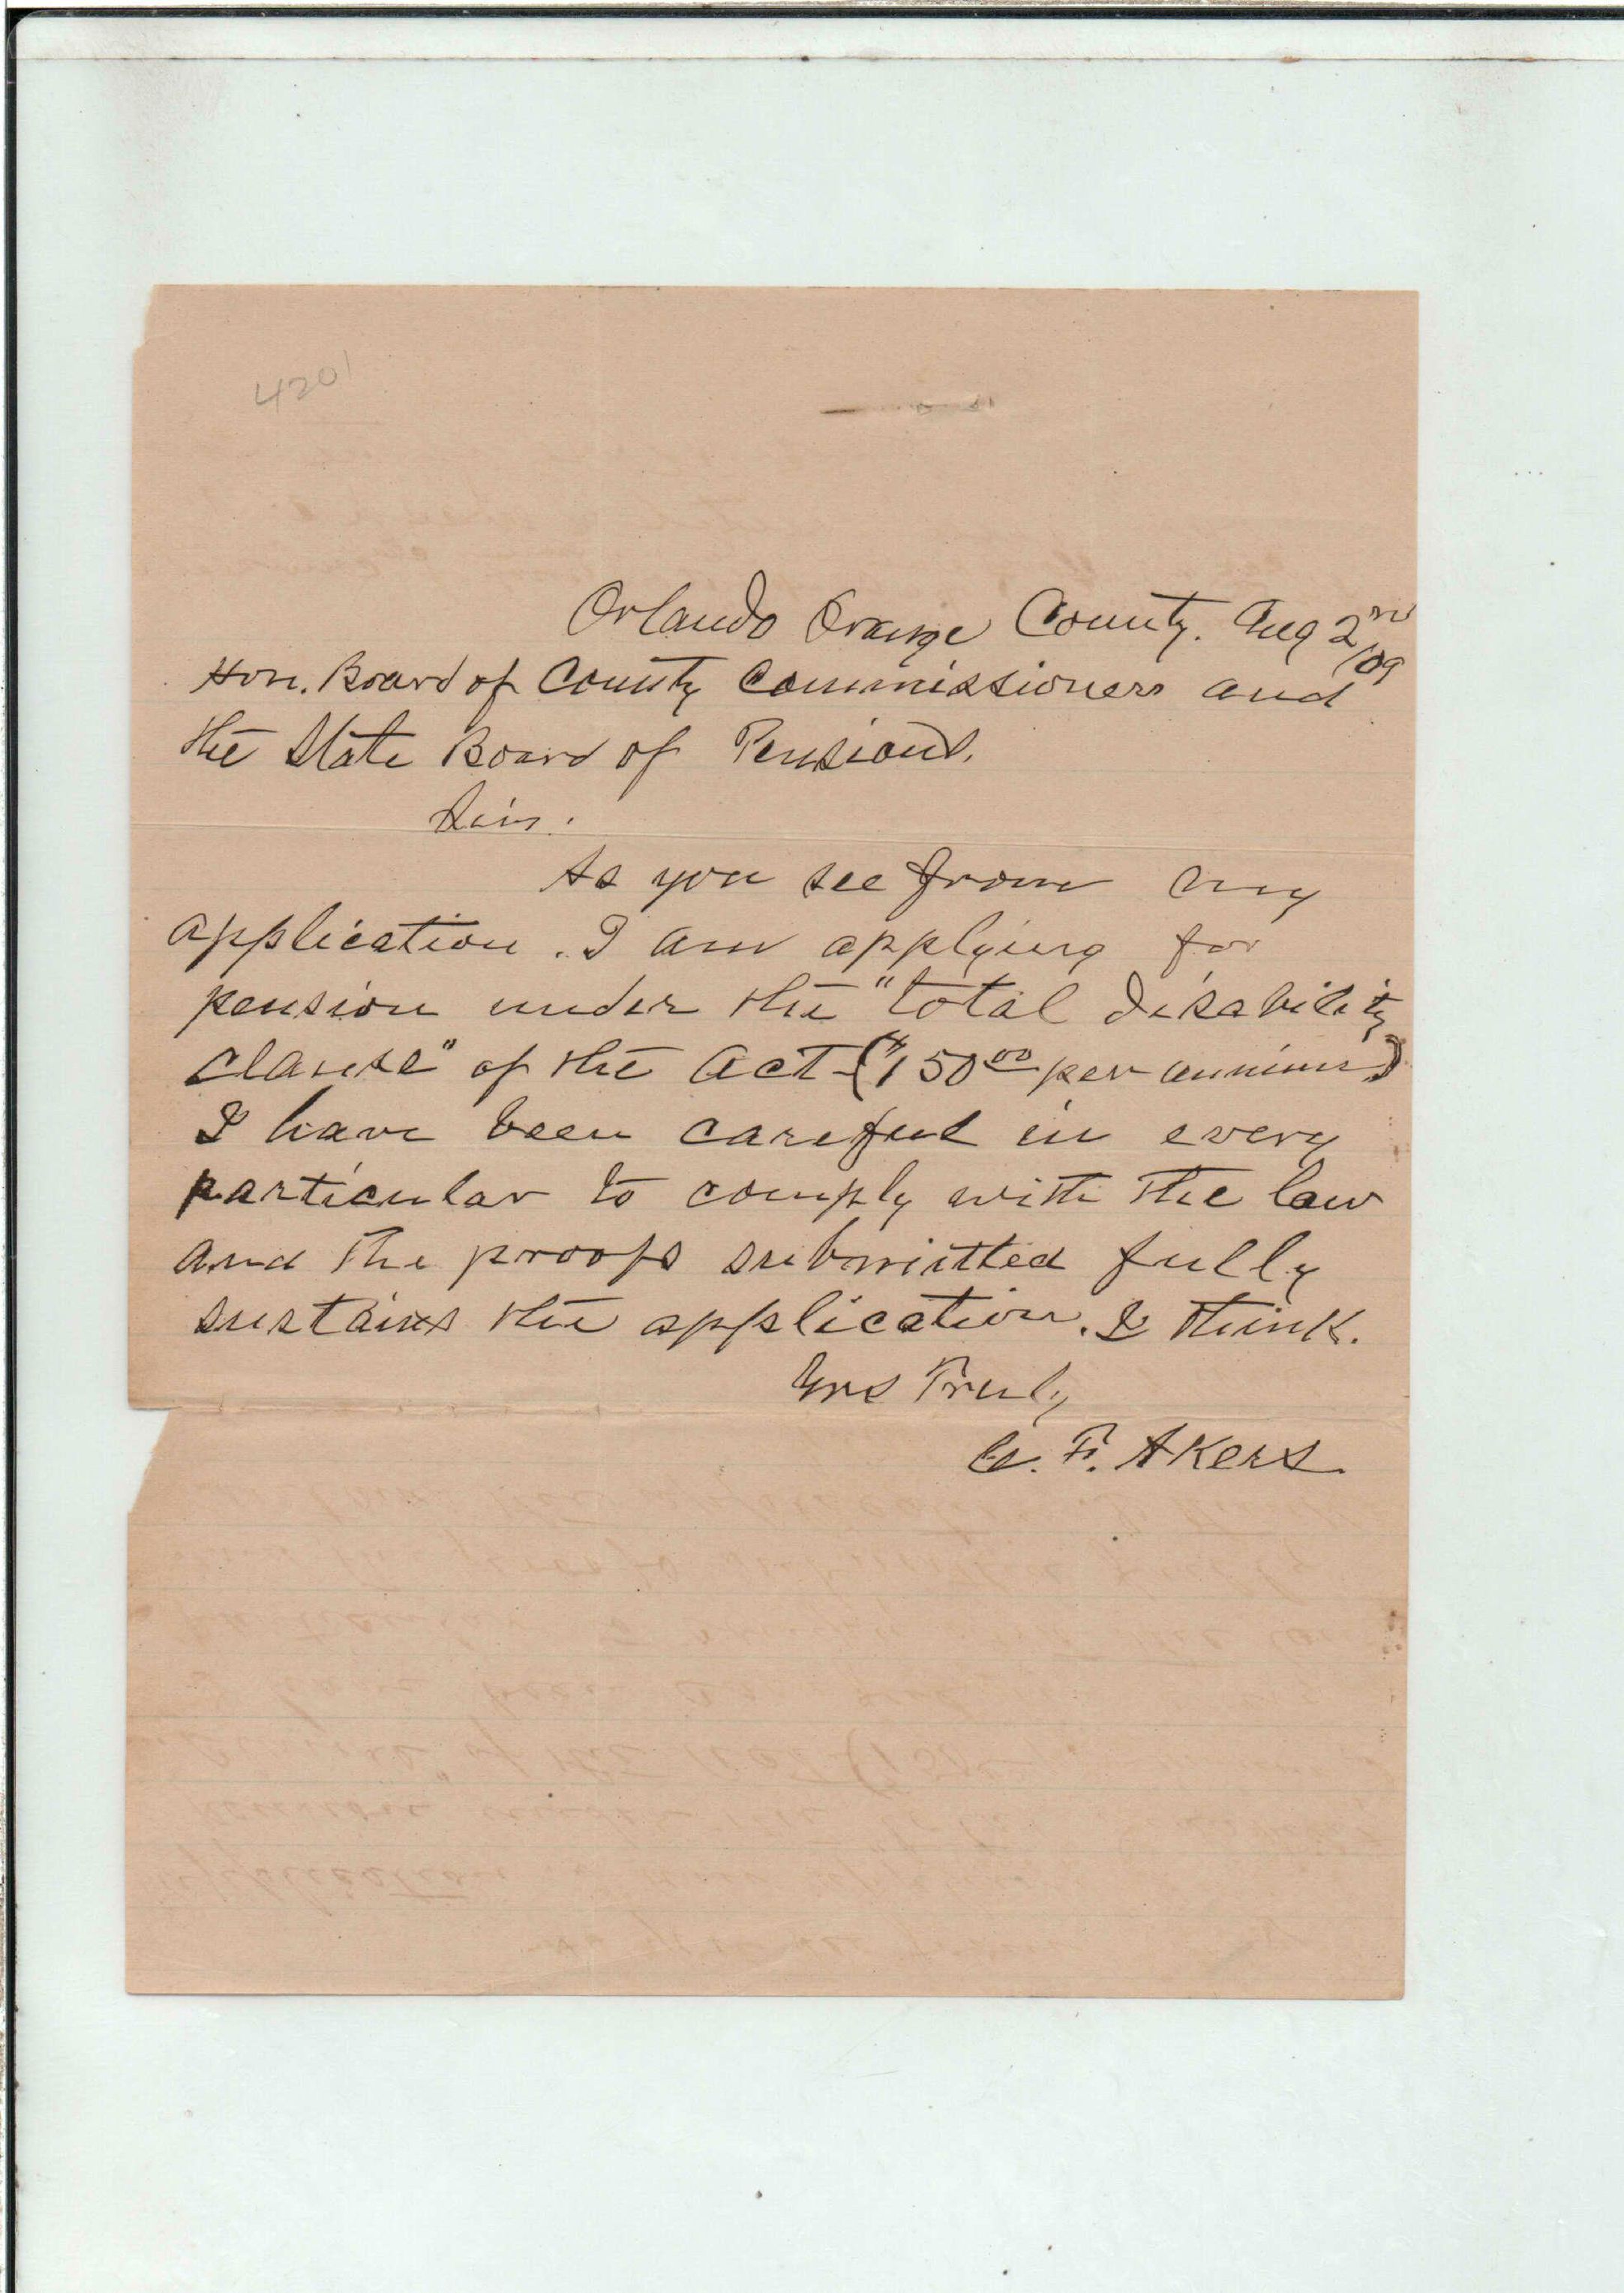 4201
Orlando Orange County. Aug 2nd /09
Hon. Board of County Commissioners and
the State Board of Pensions.
Sirs.
As you see from my
application. I am applying for
pension under the "total disability
clause" of the Act ($150.00 per annum)
I have been careful in every
particular to comply with the law
and the proofs submitted fully
sustains the application. I think.
Yrs Truly
C. F. Akers